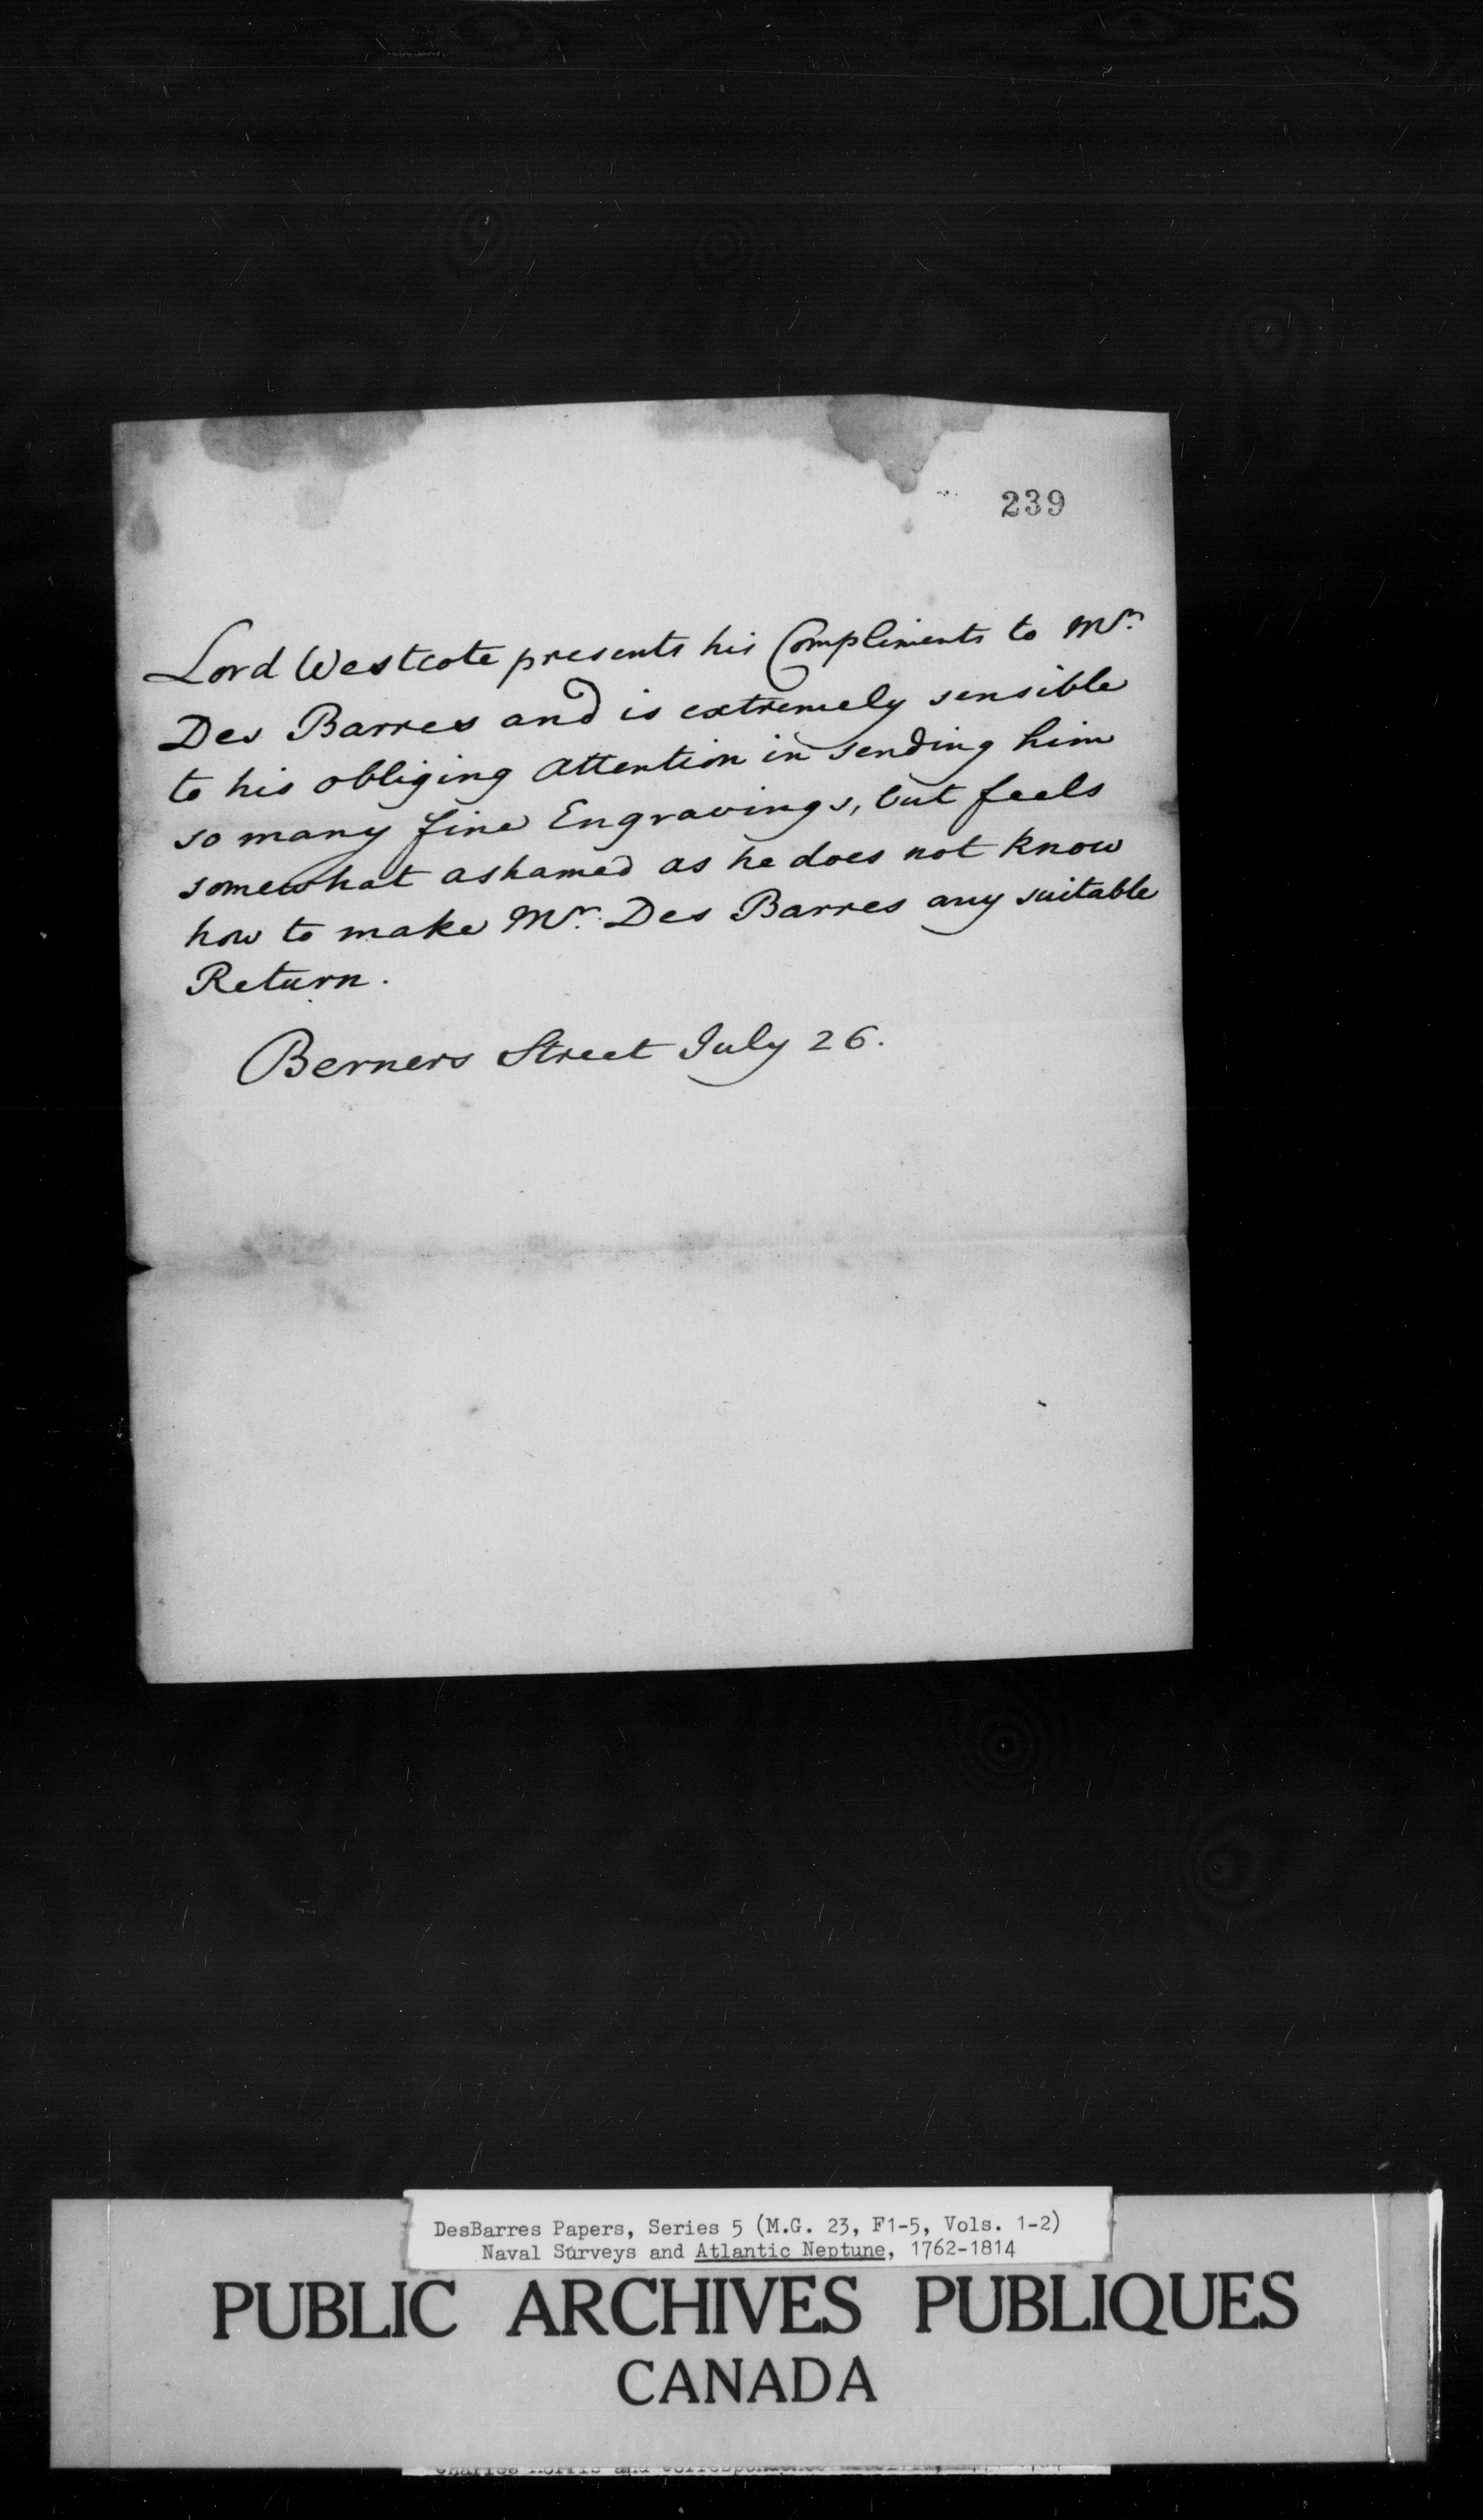 239
Lord Westcote presents his Compliments to Mr.
Des Barres and is extremely sensible
to his obliging Attention in sending him
so many fine Engravings, but feels
somewhat ashamed as he does not know
how to make Mr. Des Barres any suitable
Return.
Berners Street July 26.
DesBarres Papers, Series 5 (M.G. 23, F1-5, Vols. 1-2)
Naval Surveys and Atlantic Neptune, 1762-1814
PUBLIC ARCHIVES PUBLIQUES
CANADA